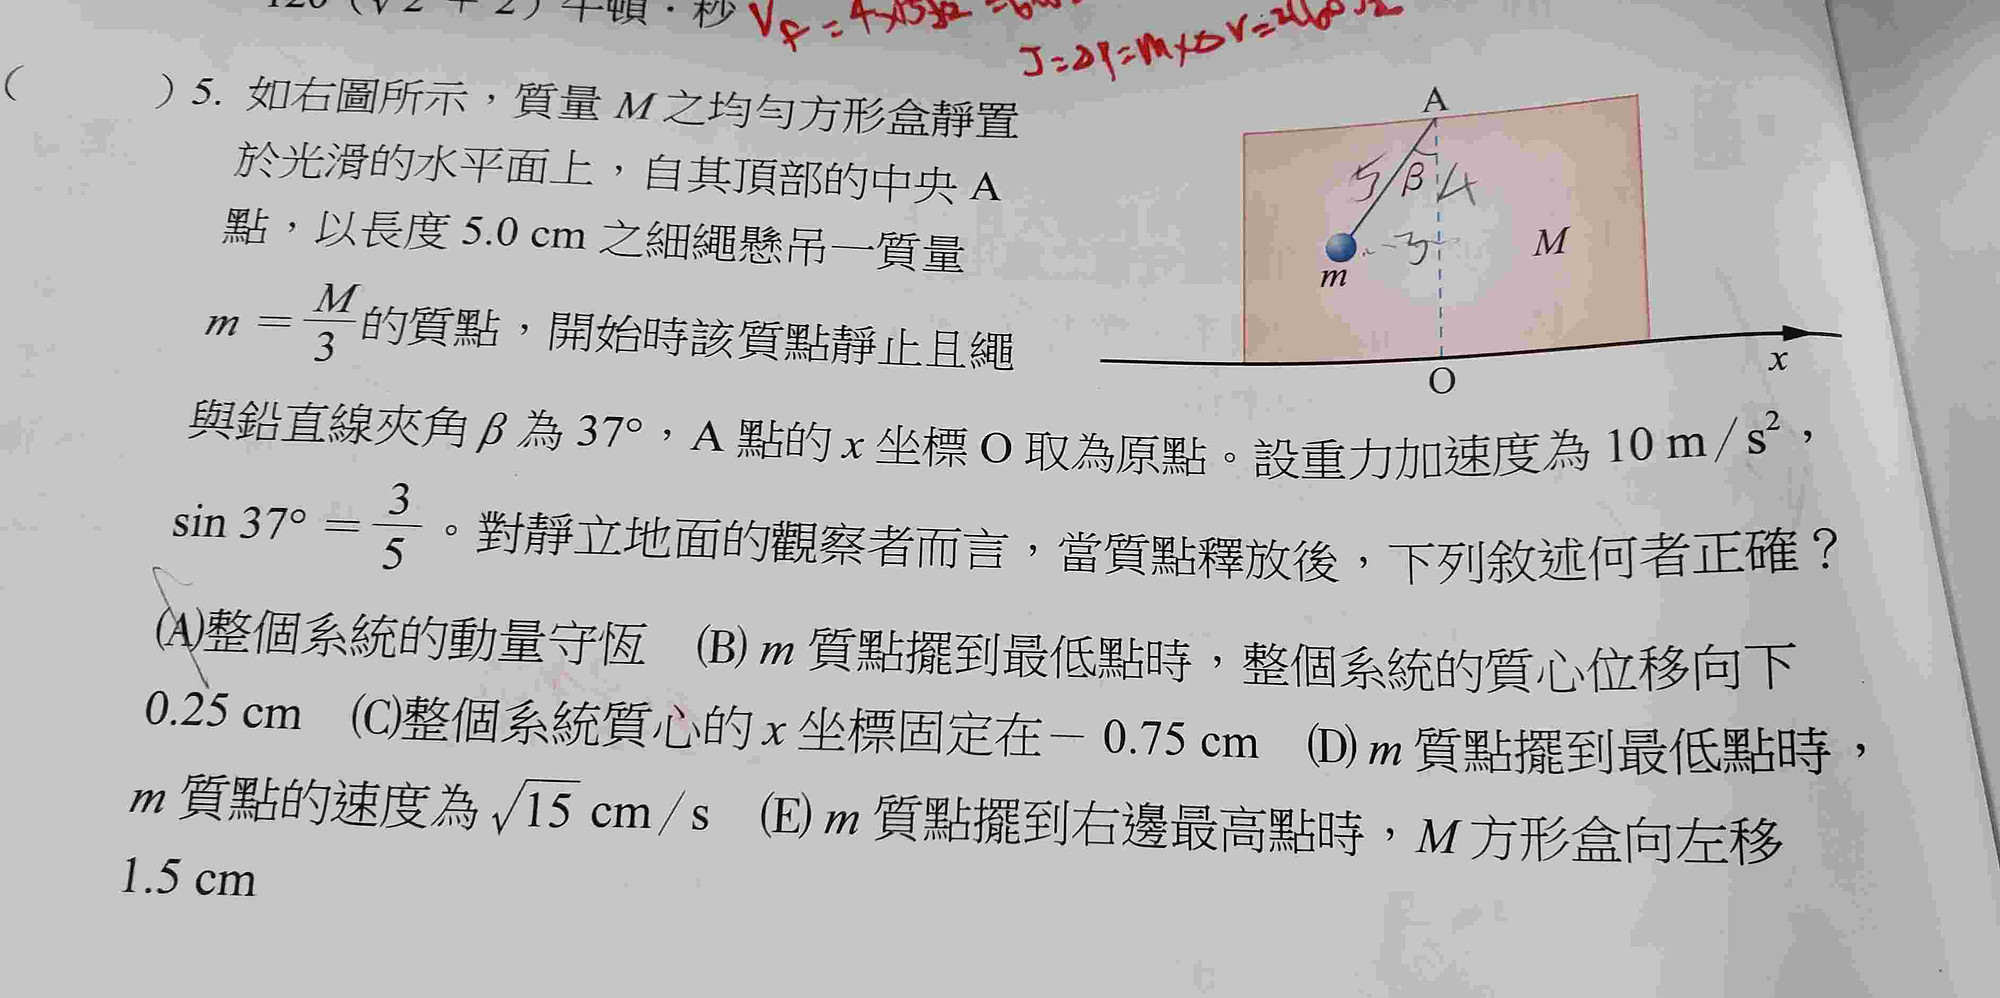 120 (√2 + 2) 牛頓・秒
J=ΔP=m×ΔV=
( ) 5. 如右圖所示，質量 M 之均勻方形盒靜置
於光滑的水平面上，自其頂部的中央 A
點，以長度 5.0 cm 之細繩懸吊一質量
m = M/3 的質點，開始時該質點靜止且繩
A
5
β
4
3
m
M
O
x
與鉛直線夾角 β 為 37°，A 點的 x 坐標 O 取為原點。設重力加速度為 10 m/s²，
sin 37° = 3/5。對靜立地面的觀察者而言，當質點釋放後，下列敘述何者正確？
(A)整個系統的動量守恆 (B) m 質點擺到最低點時，整個系統的質心位移向下
0.25 cm (C)整個系統質心的 x 坐標固定在－0.75 cm (D) m 質點擺到最低點時，
m 質點的速度為 √15 cm/s (E) m 質點擺到右邊最高點時，M 方形盒向左移
1.5 cm